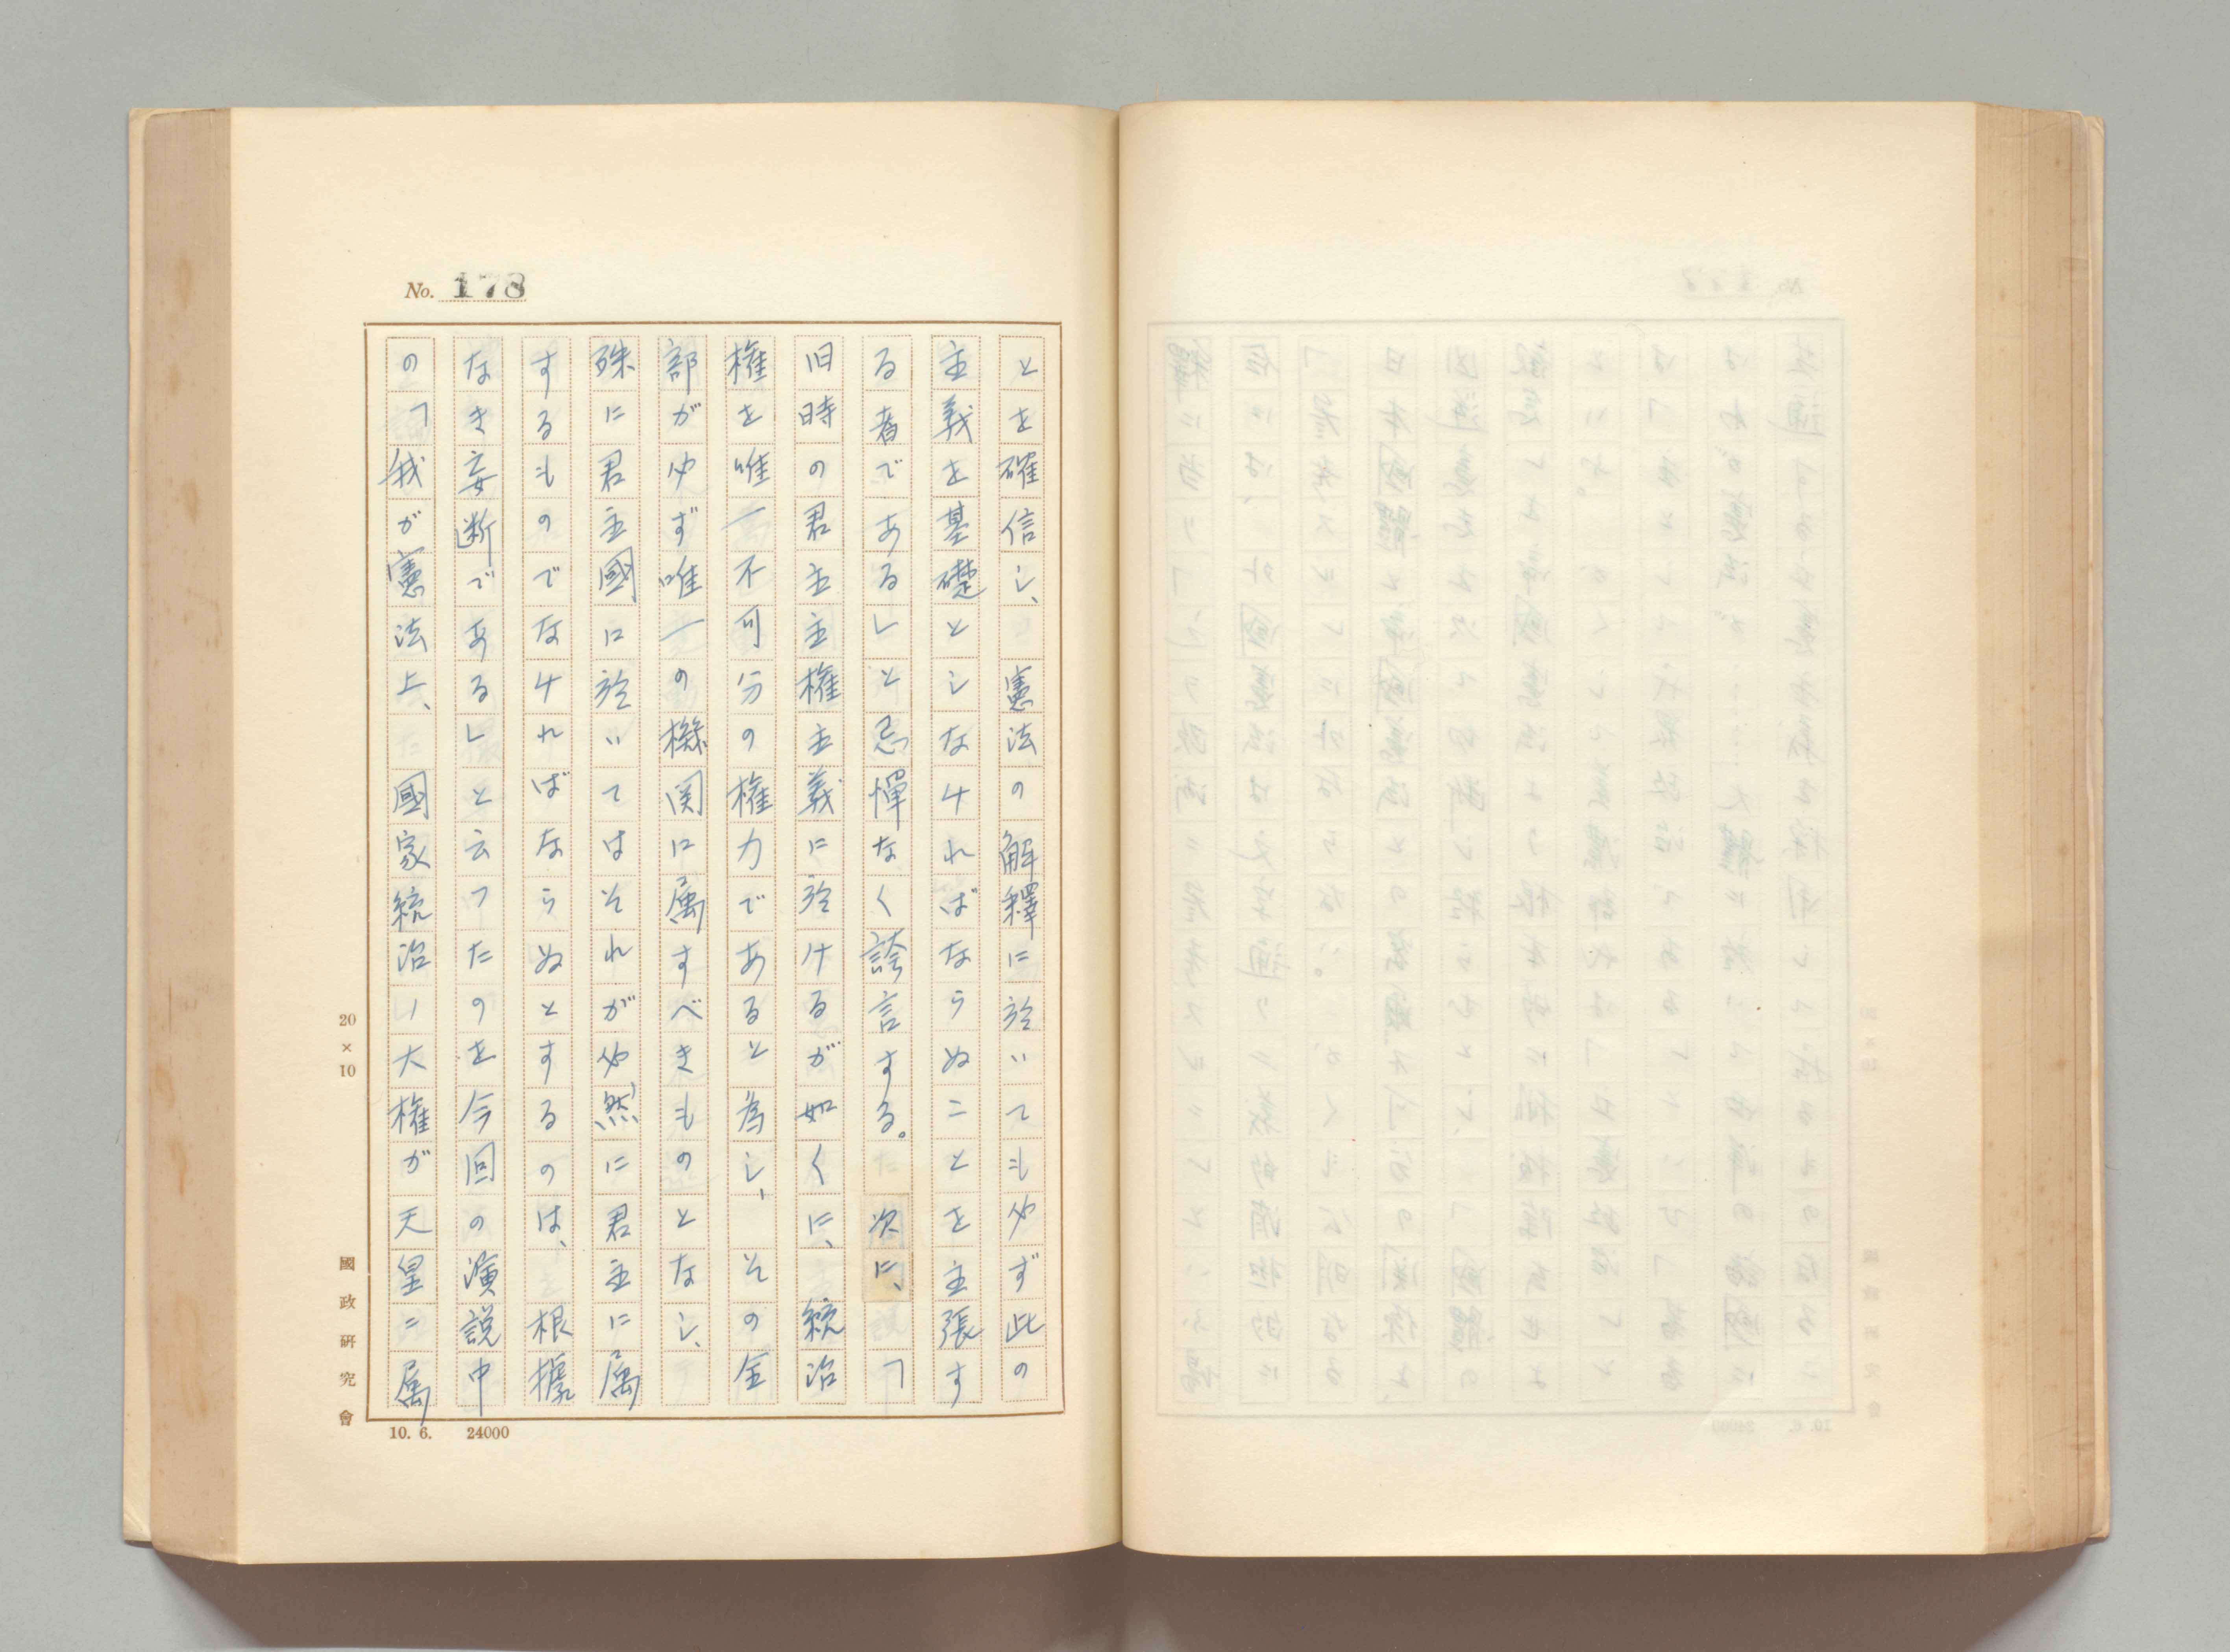 No. 178
とを確信し、憲法の解釋に於いても必ず此の
主義を基礎としなければならぬことを主張す
る者である」と忌憚なく誇言する。次に、「
旧時の君主主権主義に於けるが如くに、統治
権を唯一不可分の権力であると為し、その全
部が必ず唯一の機関に属すべきものとなし、
殊に君主國に於いてはそれが必然に君主に属
するものでなければならぬとするのは、根據
なき妄断である」と云つたのを今回の演説中
の「我が憲法上、國家統治ノ大権が天皇ニ属
20×10
國政研究會
10. 6. 24000